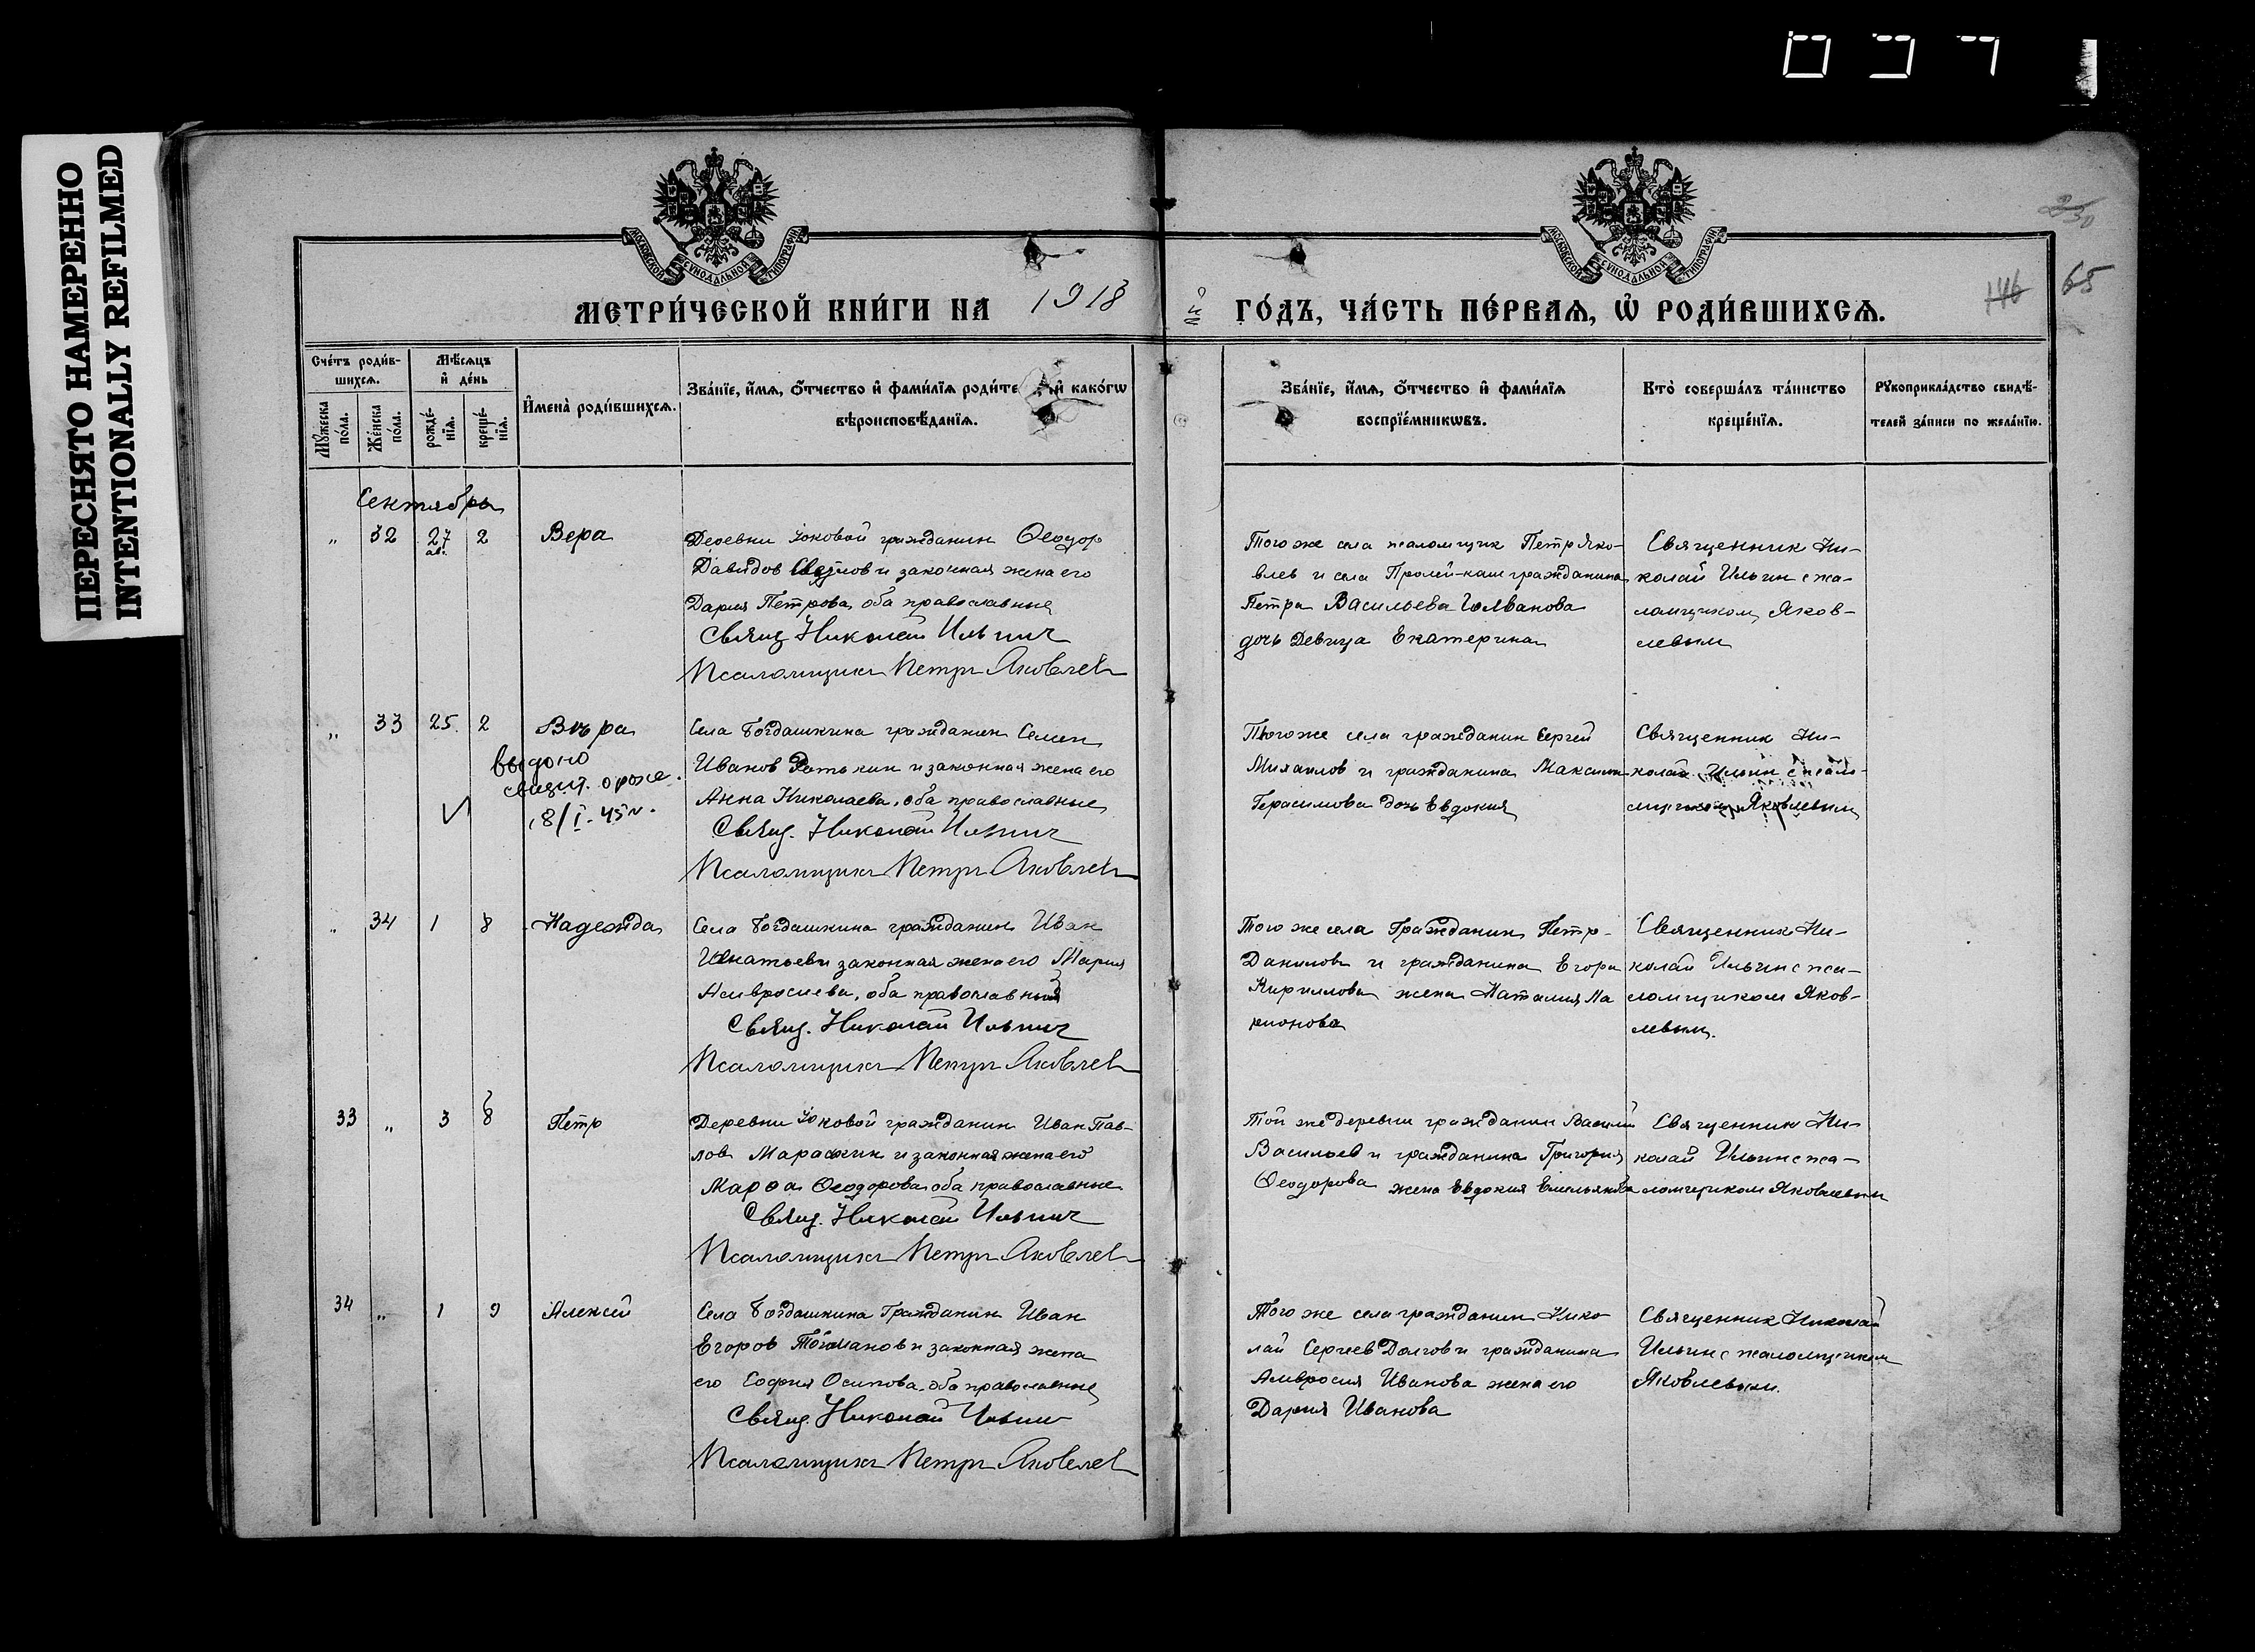 ПЕРЕСНЯТО НАМЕРЕННО
INTENTIONALLY REFILMED
МОСКОВСКОЙ СѴНОДАЛЬНОЙ ТИПОГРАФІИ
МОСКОВСКОЙ СѴНОДАЛЬНОЙ ТИПОГРАФІИ
65
МЕТРИ́ЧЕСКОЙ КНИ́ГИ НА 1918 й ГО́ДЪ, ЧА́СТЬ ПЕ́РВАѦ, Ѡ҆ РОДИ́ВШИХСѦ. 146
Сче́тъ роди́в-
шихсѧ.
Мꙋжеска по́ла.
Же́нска по́ла.
Мѣ́сѧцъ
и҆ де́нь
рожде́-
нїѧ.
креще́-
нїѧ.
И҆мена̀ роди́вшихсѧ.
Зва́нїе, и҆́мѧ, ѻ҆́тчество и҆ фами́лїѧ роди́те и҆ како́гѡ
вѣроисповѣ́данїѧ.
Зва́нїе, и҆́мѧ, ѻ҆́тчество и҆ фами́лїѧ
воспрїе́мникѡвъ.
Кто̀ соверша́лъ та́инство
креще́нїѧ.
Рꙋкоприкла́дство свидѣ́-
телей за́писи по жела́нїю.
Сентябрь
„ 32 27 ав. 2 Вера
Деревни Юковой гражданин Ѳеодор
Давыдов и законная жена его
Дария Петрова, оба православные
Свящ Николай Ильин
Псаломщик Петр Яковлев
Того же села псаломщик Петр Яко-
влев и села гражданина
Петра Васильева
дочь Девица Екатерина
Священник Ни-
колай Ильин с пса-
ломщиком Яков-
левым
„ 33 25 2 Вѣра
выдано
свидет. о рожд.
18/I-45 г.
Села Богдашкина гражданин Семен
Иванов и законная жена его
Анна Николаева, оба православные
Свящ. Николай Ильин
Псаломщик Петр Яковлев
Того же села гражданин Сергей
Михаилов и гражданина Максима
Герасимова дочь Евдокия
Священник Ни-
колай Ильин с псало-
мщиком Яковлевым
„ 34 1 8 Надежда
Села Богдашкина гражданин Иван
Игнатьев и законная жена его Мария
Амвросиева, оба православныя
Свящ. Николай Ильин
Псаломщик Петр Яковлев
Того же села Гражданин Петр
Данилов и гражданина Егора
Кириллова жена Наталия Ла
рионова
Священник Ни-
колай Ильин с пса-
ломщиком Яков-
левым.
33 „ 3 8 Петр
Деревни Юковой гражданин Иван Пав-
лов и законная жена его
Марѳа Ѳеодорова оба православные
Свящ. Николай Ильин
Псаломщик Петр Яковлев
Той же деревни гражданин Василий
Васильев и гражданина Григория
Ѳеодорова жена Евдокия Емельянова
Священник Ни-
колай Ильин с пса-
ломщиком Яковлевым
34 „ 1 9 Алексей
Села Богдашкина Гражданин Иван
Егоров и законная жена
его София Осипова, оба православные
Свящ. Николай Ильин
Псаломщик Петр Яковлев
Того же села гражданин Нико
лай Сергеев Долгов и гражданина
Амвросия Иванова жена его
Дария Иванова
Священник Николай
Ильин с псаломщиком
Яковлевым.